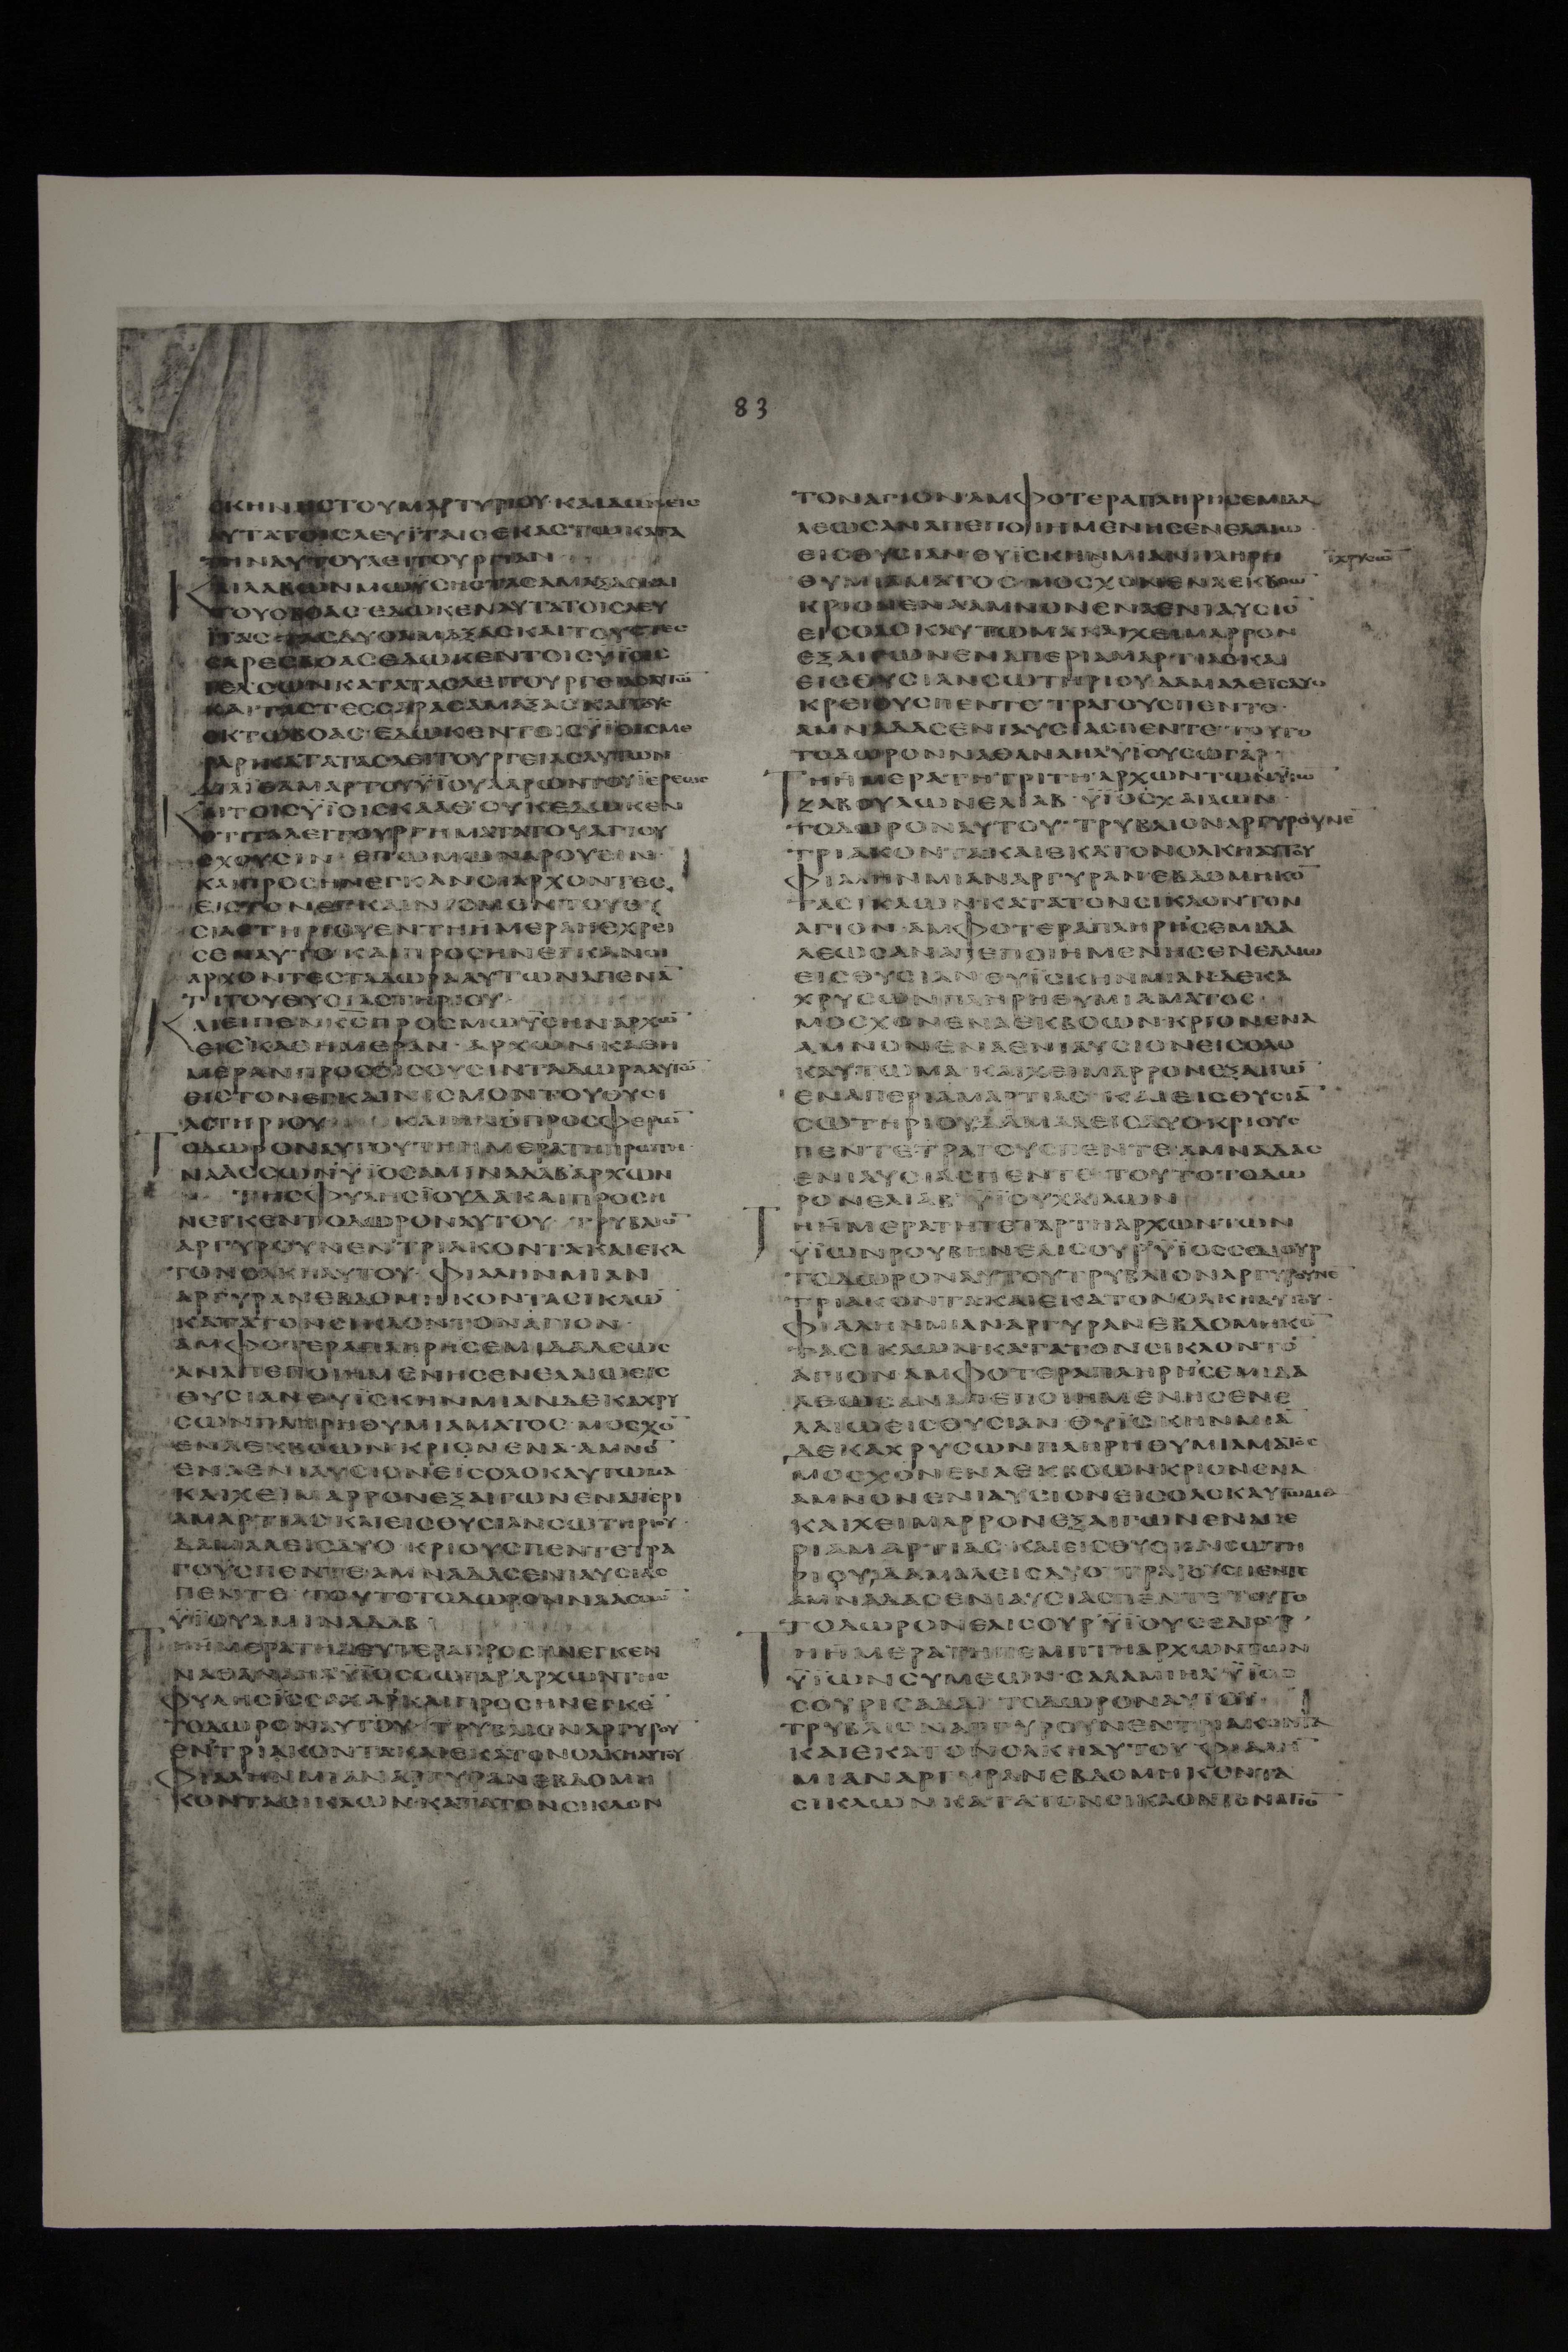 83
ΣΚΗΝΗΣ ΤΟΥ ΜΑΡΤΥΡΙΟΥ· ΚΑΙ ΔΩΣΕΙΣ
ΑΥΤΑ ΤΟΙΣ ΛΕΥΙΤΑΙΣ ΕΚΑΣΤΩ ΚΑΤΑ
ΤΗΝ ΑΥΤΟΥ ΛΕΙΤΟΥΡΓΙΑΝ
ΚΑΙ ΛΑΒΩΝ ΜΩΥΣΗΣ ΤΑΣ ΑΜΑΞΑΣ ΚΑΙ
ΤΟΥΣ ΒΟΑΣ ΕΔΩΚΕΝ ΑΥΤΑ ΤΟΙΣ ΛΕΥ
ΙΤΑΙΣ ΤΑΣ ΔΥΟ ΑΜΑΞΑΣ ΚΑΙ ΤΟΥΣ ΤΕΣ
ΣΑΡΕΣ ΒΟΑΣ ΕΔΩΚΕΝ ΤΟΙΣ ΥΪΟΙΣ
ΓΕΔΣΩΝ ΚΑΤΑ ΤΑΣ ΛΕΙΤΟΥΡΓΕΙΑΣ ΑΥΤΩ̅
ΚΑΙ ΤΑΣ ΤΕΣΣΑΡΑΣ ΑΜΑΞΑΣ ΚΑΙ ΤΟΥΣ
ΟΚΤΩ ΒΟΑΣ ΕΔΩΚΕΝ ΤΟΙΣ ΥΪΟΙΣ ΜΕ
ΡΑΡΗ ΚΑΤΑ ΤΑΣ ΛΕΙΤΟΥΡΓΕΙΑΣ ΑΥΤΩΝ
ΔΙΑ ΪΘΑΜΑΡ ΤΟΥ ΥΪΟΥ ΑΑΡΩΝ ΤΟΥ ΪΕΡΕΩΣ
ΚΑΙ ΤΟΙΣ ΥΪΟΙΣ ΚΑΑΘ ΟΥΚ ΕΔΩΚΕΝ
ΟΤΙ ΤΑ ΛΕΙΤΟΥΡΓΗΜΑΤΑ ΤΟΥ ΑΓΙΟΥ
ΕΧΟΥΣΙΝ ΕΠ ΩΜΩΝ ΑΡΟΥΣΙΝ
ΚΑΙ ΠΡΟΣΗΝΕΓΚΑΝ ΟΙ ΑΡΧΟΝΤΕΣ
ΕΙΣ ΤΟΝ ΕΓΚΑΙΝΙΣΜΟΝ ΤΟΥ ΘΥ
ΣΙΑΣΤΗΡΙΟΥ ΕΝ ΤΗ ΗΜΕΡΑ Η ΕΧΡΕΙ
ΣΕΝ ΑΥΤΟ ΚΑΙ ΠΡΟΣΗΝΕΓΚΑΝ ΟΙ
ΑΡΧΟΝΤΕΣ ΤΑ ΔΩΡΑ ΑΥΤΩΝ ΑΠΕΝΑ̅
ΤΙ ΤΟΥ ΘΥΣΙΑΣΤΗΡΙΟΥ
ΚΑΙ ΕΙΠΕΝ Κ̅Σ̅ ΠΡΟΣ ΜΩΥΣΗΝ ΑΡΧΩ̅
ΕΙΣ ΚΑΘ ΗΜΕΡΑΝ· ΑΡΧΩΝ ΚΑΘ Η
ΜΕΡΑΝ ΠΡΟΣΟΙΣΟΥΣΙΝ ΤΑ ΔΩΡΑ ΑΥΤΩ̅
ΕΙΣ ΤΟΝ ΕΓΚΑΙΝΙΣΜΟΝ ΤΟΥ ΘΥΣΙ
ΑΣΤΗΡΙΟΥ ΚΑΙ ΗΝ Ο ΠΡΟΣΦΕΡΩ̅
ΤΟ ΔΩΡΟΝ ΑΥΤΟΥ ΤΗ ΗΜΕΡΑ ΤΗ ΠΡΩΤΗ
ΝΑΑΣΣΩΝ ΥΪΟΣ ΑΜΙΝΑΔΑΒ ΑΡΧΩΝ
ΤΗΣ ΦΥΛΗΣ ΪΟΥΔΑ ΚΑΙ ΠΡΟΣΗ
ΝΕΓΚΕΝ ΤΟ ΔΩΡΟΝ ΑΥΤΟΥ ΤΡΥΒΛΙΟ̅
ΑΡΓΥΡΟΥΝ ΕΝ ΤΡΙΑΚΟΝΤΑ ΚΑΙ ΕΚΑ
ΤΟΝ ΟΛΚΗ ΑΥΤΟΥ· ΦΙΑΛΗΝ ΜΙΑΝ
ΑΡΓΥΡΑΝ ΕΒΔΟΜΗΚΟΝΤΑ ΣΙΚΛΩ̅
ΚΑΤΑ ΤΟΝ ΣΙΚΛΟΝ ΤΟΝ ΑΓΙΟΝ·
ΑΜΦΟΤΕΡΑ ΠΛΗΡΗ ΣΕΜΙΔΑΛΕΩΣ
ΑΝΑΠΕΠΟΙΗΜΕΝΗΣ ΕΝ ΕΛΑΙΩ ΕΙΣ
ΘΥΣΙΑΝ ΘΥΪΣΚΗΝ ΜΙΑΝ ΔΕΚΑ ΧΡΥ
ΣΩΝ ΠΛΗΡΗ ΘΥΜΙΑΜΑΤΟΣ· ΜΟΣΧΟ̅
ΕΝΑ ΕΚ ΒΟΩΝ ΚΡΙΟΝ ΕΝΑ· ΑΜΝΟ̅
ΕΝΑ ΕΝΙΑΥΣΙΟΝ ΕΙΣ ΟΛΟΚΑΥΤΩΜΑ
ΚΑΙ ΧΕΙΜΑΡΡΟΝ ΕΞ ΑΙΓΩΝ ΕΝΑ ΠΕΡΙ
ΑΜΑΡΤΙΑΣ ΚΑΙ ΕΙΣ ΘΥΣΙΑΝ ΣΩΤΗΡΙΟΥ
ΔΑΜΑΛΕΙΣ ΔΥΟ ΚΡΙΟΥΣ ΠΕΝΤΕ ΤΡΑ
ΓΟΥΣ ΠΕΝΤΕ ΑΜΝΑΔΑΣ ΕΝΙΑΥΣΙΑΣ
ΠΕΝΤΕ ΤΟΥΤΟ ΤΟ ΔΩΡΟΝ ΝΑΑΣΣΩ̅
ΥΪΟΥ ΑΜΙΝΑΔΑΒ
ΤΗ ΗΜΕΡΑ ΤΗ ΔΕΥΤΕΡΑ ΠΡΟΣΗΝΕΓΚΕΝ
ΝΑΘΑΝΑΗΛ ΥΪΟΣ ΣΩΓΑΡ ΑΡΧΩΝ ΤΗΣ
ΦΥΛΗΣ ΪΣΣΑΧΑΡ ΚΑΙ ΠΡΟΣΗΝΕΓΚΕ̅
ΤΟ ΔΩΡΟΝ ΑΥΤΟΥ· ΤΡΥΒΛΙΟΝ ΑΡΓΥΡΟΥ
ΕΝ ΤΡΙΑΚΟΝΤΑ ΚΑΙ ΕΚΑΤΟΝ ΟΛΚΗ ΑΥΤΟΥ
ΦΙΑΛΗΝ ΜΙΑΝ ΑΡΓΥΡΑΝ ΕΒΔΟΜΗ
ΚΟΝΤΑ ΣΙΚΛΩΝ· ΚΑΤΑ ΤΟΝ ΣΙΚΛΟΝ
ΤΟΝ ΑΓΙΟΝ ΑΜΦΟΤΕΡΑ ΠΛΗΡΗ ΣΕΜΙΔΑ
ΛΕΩΣ ΑΝΑΠΕΠΟΙΗΜΕΝΗΣ ΕΝ ΕΛΑΙΩ
ΕΙΣ ΘΥΣΙΑΝ ΘΥΪΣΚΗΝ ΜΙΑΝ ΠΛΗΡΗ
ΘΥΜΙΑΜΑΤΟΣ· ΜΟΣΧΟΝ ΕΝΑ ΕΚ ΒΟΩ̅
ΚΡΙΟΝ ΕΝΑ ΑΜΝΟΝ ΕΝΑ ΕΝΙΑΥΣΙΟ̅
ΕΙΣ ΟΛΟΚΑΥΤΩΜΑ ΚΑΙ ΧΕΙΜΑΡΡΟΝ
ΕΞ ΑΙΓΩΝ ΕΝΑ ΠΕΡΙ ΑΜΑΡΤΙΑΣ ΚΑΙ
ΕΙΣ ΘΥΣΙΑΝ ΣΩΤΗΡΙΟΥ ΔΑΜΑΛΕΙΣ ΔΥΟ
ΚΡΕΙΟΥΣ ΠΕΝΤΕ ΤΡΑΓΟΥΣ ΠΕΝΤΕ
ΑΜΝΑΔΑΣ ΕΝΙΑΥΣΙΑΣ ΠΕΝΤΕ· ΤΟΥΤΟ
ΤΟ ΔΩΡΟΝ ΝΑΘΑΝΑΗΛ ΥΪΟΥ ΣΩΓΑΡ·
ΤΗ ΗΜΕΡΑ ΤΗ ΤΡΙΤΗ ΑΡΧΩΝ ΤΩΝ ΥΪΩ̅
ΖΑΒΟΥΛΩΝ ΕΛΙΑΒ· ΥΪΟΣ ΧΑΙΛΩΝ
ΤΟ ΔΩΡΟΝ ΑΥΤΟΥ· ΤΡΥΒΛΙΟΝ ΑΡΓΥΡΟΥΝ Ε̅
ΤΡΙΑΚΟΝΤΑ ΚΑΙ ΕΚΑΤΟΝ ΟΛΚΗ ΑΥΤΟΥ
ΦΙΑΛΗΝ ΜΙΑΝ ΑΡΓΥΡΑΝ ΕΒΔΟΜΗΚΟ̅
ΤΑ ΣΙΚΛΩΝ· ΚΑΤΑ ΤΟΝ ΣΙΚΛΟΝ ΤΟΝ
ΑΓΙΟΝ· ΑΜΦΟΤΕΡΑ ΠΛΗΡΗ ΣΕΜΙΔΑ
ΛΕΩΣ ΑΝΑΠΕΠΟΙΗΜΕΝΗΣ ΕΝ ΕΛΑΙΩ
ΕΙΣ ΘΥΣΙΑΝ ΘΥΪΣΚΗΝ ΜΙΑΝ ΔΕΚΑ
ΧΡΥΣΩΝ ΠΛΗΡΗ ΘΥΜΙΑΜΑΤΟΣ
ΜΟΣΧΟΝ ΕΝΑ ΕΚ ΒΟΩΝ· ΚΡΙΟΝ ΕΝΑ
ΑΜΝΟΝ ΕΝΑ ΕΝΙΑΥΣΙΟΝ ΕΙΣ ΟΛΟ
ΚΑΥΤΩΜΑ· ΚΑΙ ΧΕΙΜΑΡΡΟΝ ΕΞ ΑΙΓΩ̅
ΕΝΑ ΠΕΡΙ ΑΜΑΡΤΙΑΣ· ΚΑΙ ΕΙΣ ΘΥΣΙΑ̅
ΣΩΤΗΡΙΟΥ ΔΑΜΑΛΕΙΣ ΔΥΟ· ΚΡΙΟΥΣ
ΠΕΝΤΕ ΤΡΑΓΟΥΣ ΠΕΝΤΕ ΑΜΝΑΔΑΣ
ΕΝΙΑΥΣΙΑΣ ΠΕΝΤΕ· ΤΟΥΤΟ ΤΟ ΔΩ
ΡΟΝ ΕΛΙΑΒ ΥΪΟΥ ΧΑΙΛΩΝ
ΤΗ ΗΜΕΡΑ ΤΗ ΤΕΤΑΡΤΗ ΑΡΧΩΝ ΤΩΝ
ΥΪΩΝ ΡΟΥΒΗΝ ΕΛΙΣΟΥΡ ΥΪΟΣ ΣΕΔΙΟΥΡ
ΤΟ ΔΩΡΟΝ ΑΥΤΟΥ ΤΡΥΒΛΙΟΝ ΑΡΓΥΡΟΥΝ Ε̅
ΤΡΙΑΚΟΝΤΑ ΚΑΙ ΕΚΑΤΟΝ ΟΛΚΗ ΑΥΤΟΥ·
ΦΙΑΛΗΝ ΜΙΑΝ ΑΡΓΥΡΑΝ ΕΒΔΟΜΗΚΟ̅
ΤΑ ΣΙΚΛΩΝ· ΚΑΤΑ ΤΟΝ ΣΙΚΛΟΝ ΤΟ̅
ΑΓΙΟΝ ΑΜΦΟΤΕΡΑ ΠΛΗΡΗ ΣΕΜΙΔΑ
ΛΕΩΣ ΑΝΑΠΕΠΟΙΗΜΕΝΗΣ ΕΝ Ε
ΛΑΙΩ ΕΙΣ ΘΥΣΙΑΝ ΘΥΪΣΚΗΝ ΜΙΑ̅
ΔΕΚΑ ΧΡΥΣΩΝ ΠΛΗΡΗ ΘΥΜΙΑΜΑΤΟΣ
ΜΟΣΧΟΝ ΕΝΑ ΕΚ ΒΟΩΝ ΚΡΙΟΝ ΕΝΑ
ΑΜΝΟΝ ΕΝΙΑΥΣΙΟΝ ΕΙΣ ΟΛΟΚΑΥΤΩΜΑ
ΚΑΙ ΧΕΙΜΑΡΡΟΝ ΕΞ ΑΙΓΩΝ ΕΝΑ ΠΕ
ΡΙ ΑΜΑΡΤΙΑΣ· ΚΑΙ ΕΙΣ ΘΥΣΙΑΝ ΣΩΤΗ
ΡΙΟΥ ΔΑΜΑΛΕΙΣ ΔΥΟ ΤΡΑΓΟΥΣ ΠΕΝΤΕ
ΑΜΝΑΔΑΣ ΕΝΙΑΥΣΙΑΣ ΠΕΝΤΕ ΤΟΥΤΟ
ΤΟ ΔΩΡΟΝ ΕΛΙΣΟΥΡ ΥΪΟΥ ΣΕΔΙΟΥΡ·
ΤΗ ΗΜΕΡΑ ΤΗ ΠΕΜΠΤΗ ΑΡΧΩΝ ΤΩΝ
ΥΪΩΝ ΣΥΜΕΩΝ· ΣΑΛΑΜΙΗΛ ΥΪΟΣ
ΣΟΥΡΙΣΑΔΑΙ ΤΟ ΔΩΡΟΝ ΑΥΤΟΥ·
ΤΡΥΒΛΙΟΝ ΑΡΓΥΡΟΥΝ ΕΝ ΤΡΙΑΚΟΝΤΑ
ΚΑΙ ΕΚΑΤΟΝ ΟΛΚΗ ΑΥΤΟΥ ΦΙΑΛΗ̅
ΜΙΑΝ ΑΡΓΥΡΑΝ ΕΒΔΟΜΗΚΟΝΤΑ
ΣΙΚΛΩΝ ΚΑΤΑ ΤΟΝ ΣΙΚΛΟΝ ΤΟΝ ΑΓΙΟ̅